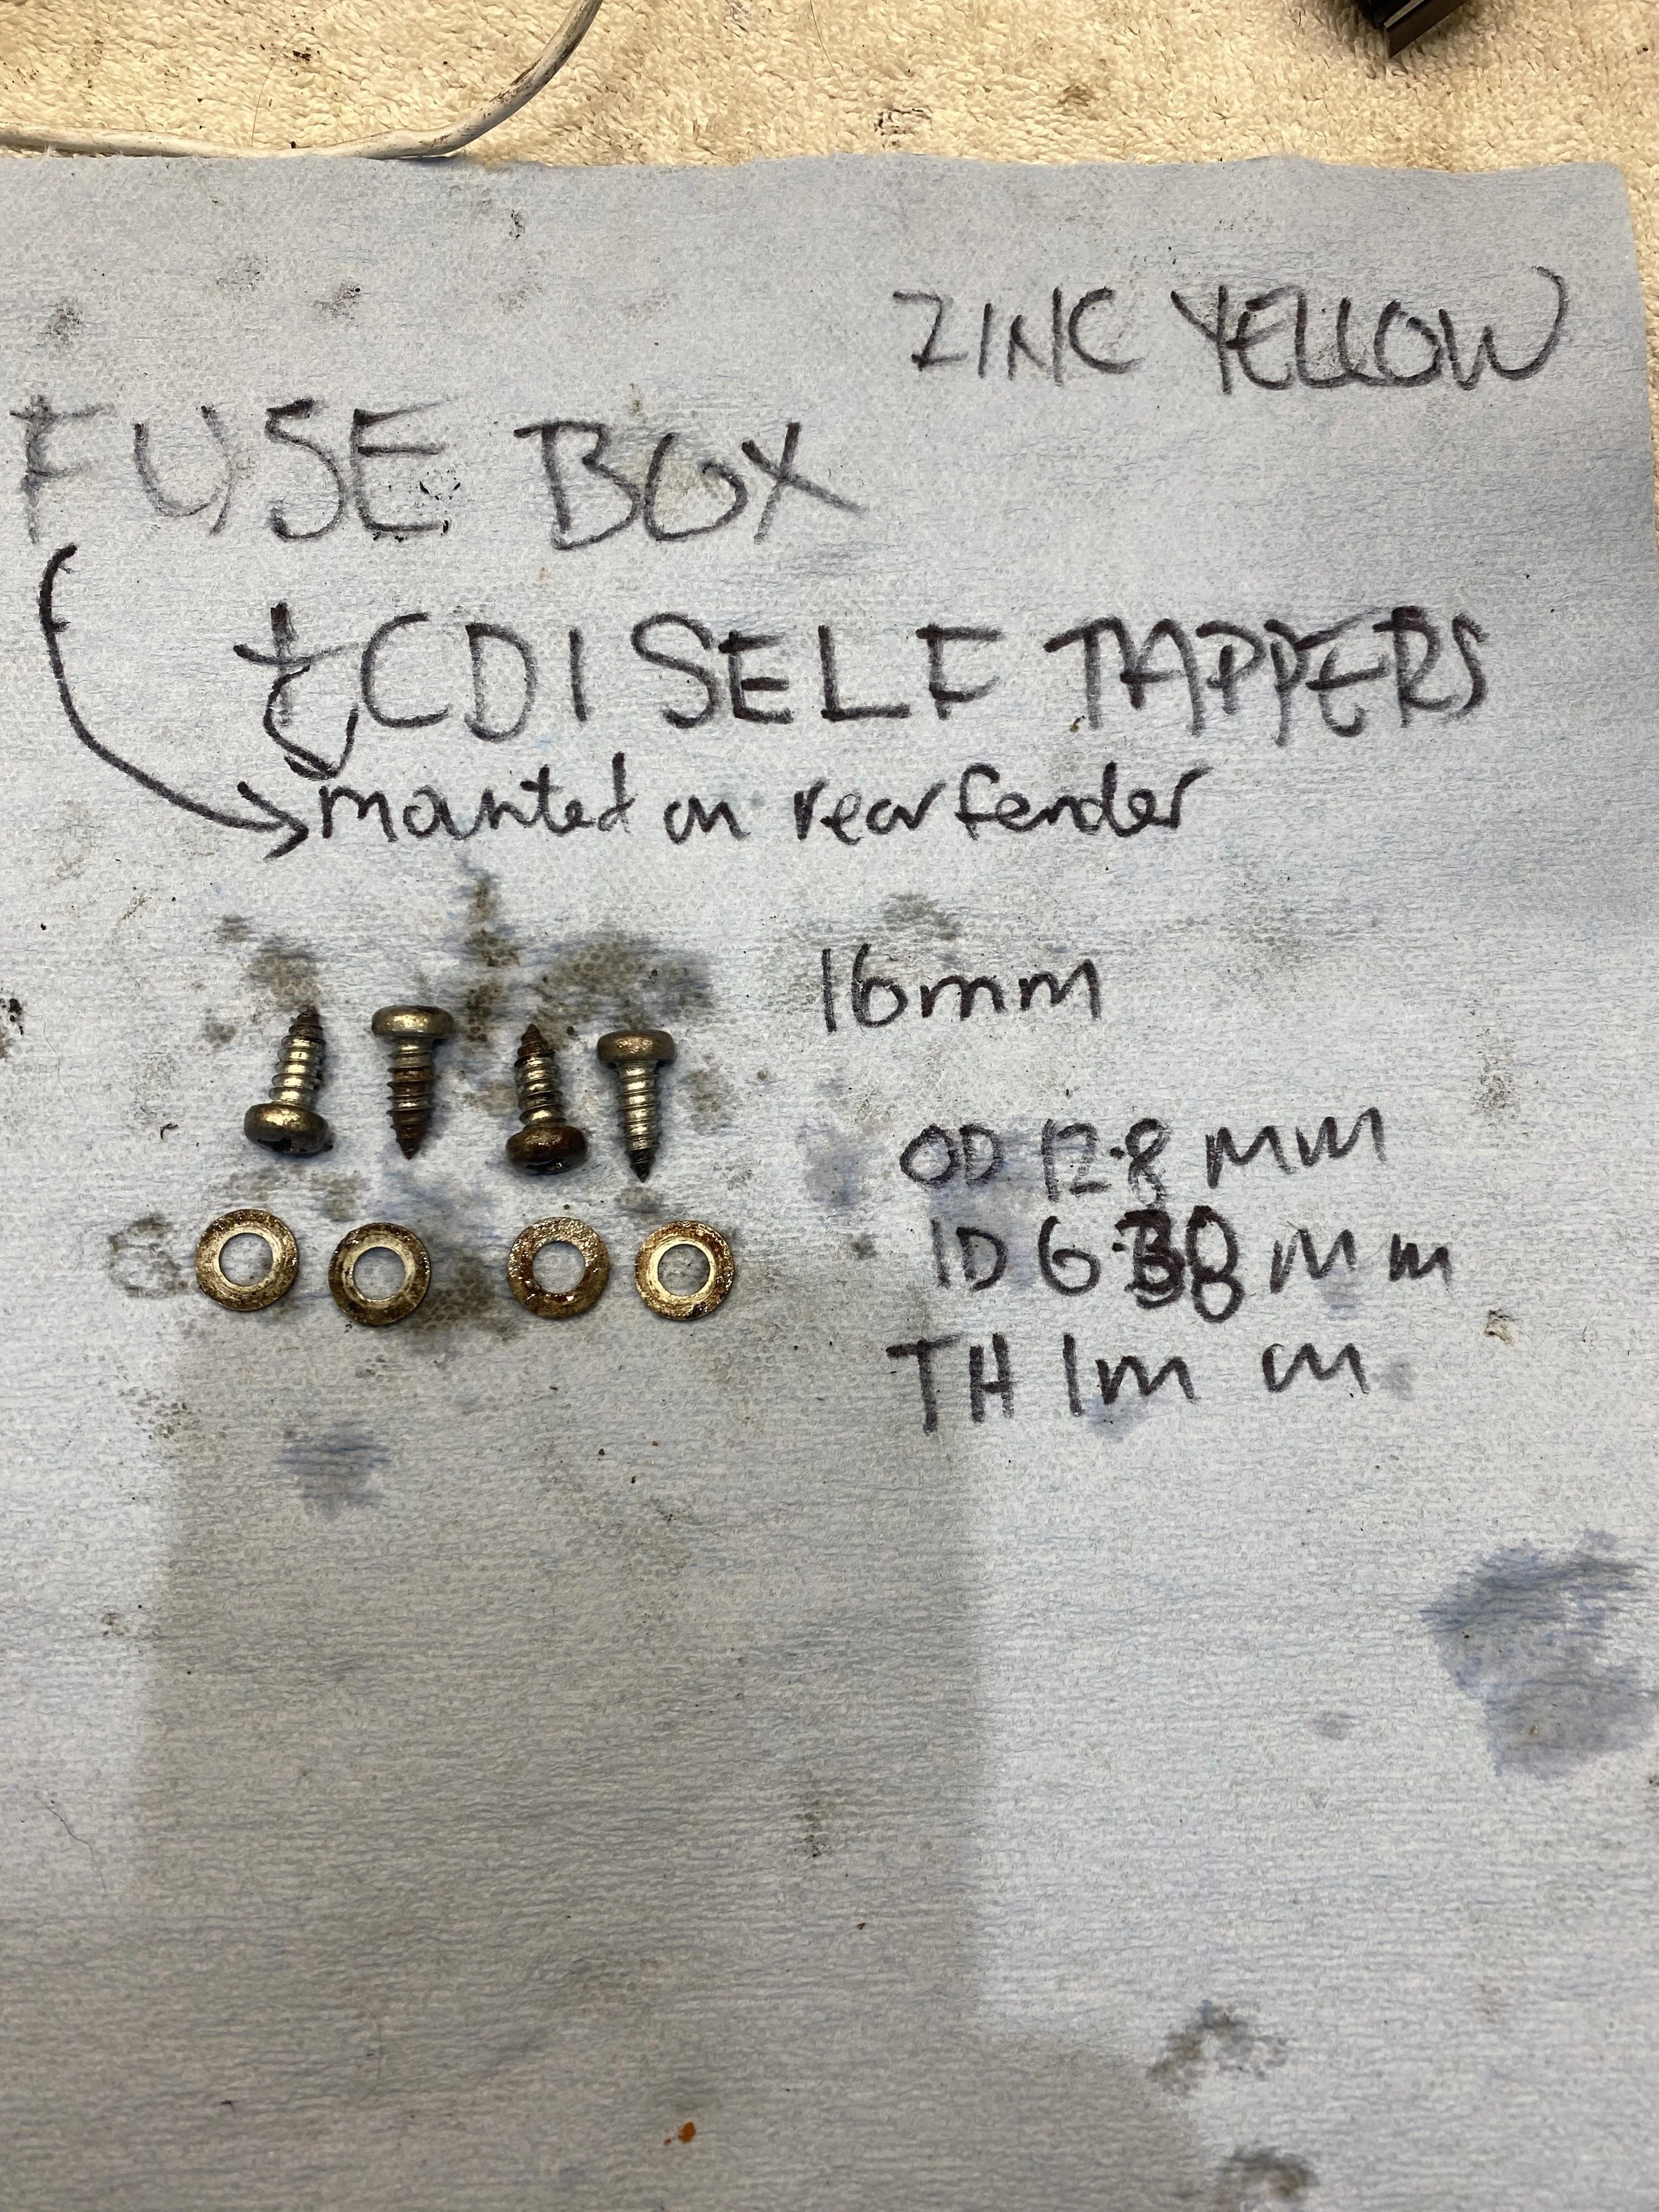 ZINC YELLOW
FUSE BOX
+ CDI SELF TAPPERS
mounted on rear fender
16mm
OD 12.8 mm
ID mm
TH 1mm